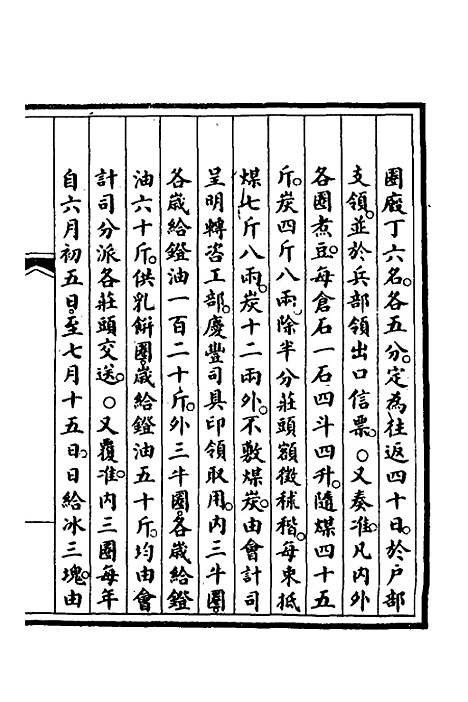 圈廄丁六名。各五分。定為往返四十日。於戶部
支領。並於兵部領出口信票。○又奏准。凡內外
各圈煮豆。每倉石一石四斗四升。隨煤四十五
斤。炭四斤八兩。除半分莊頭額徵秫稭。每束抵
煤七斤八兩。炭十二兩外。不敷煤炭。由會計司
呈明轉咨工部。慶豐司具印領取用。內三牛圈。
各歲給鐙油一百二十斤。外三牛圈。各歲給鐙
油六十斤。供乳餅圈。歲給鐙油五十斤。均由會
計司分派各莊頭交送。○又覆准。內三圈每年
自六月初五日。至七月十五日。日給冰三塊。由